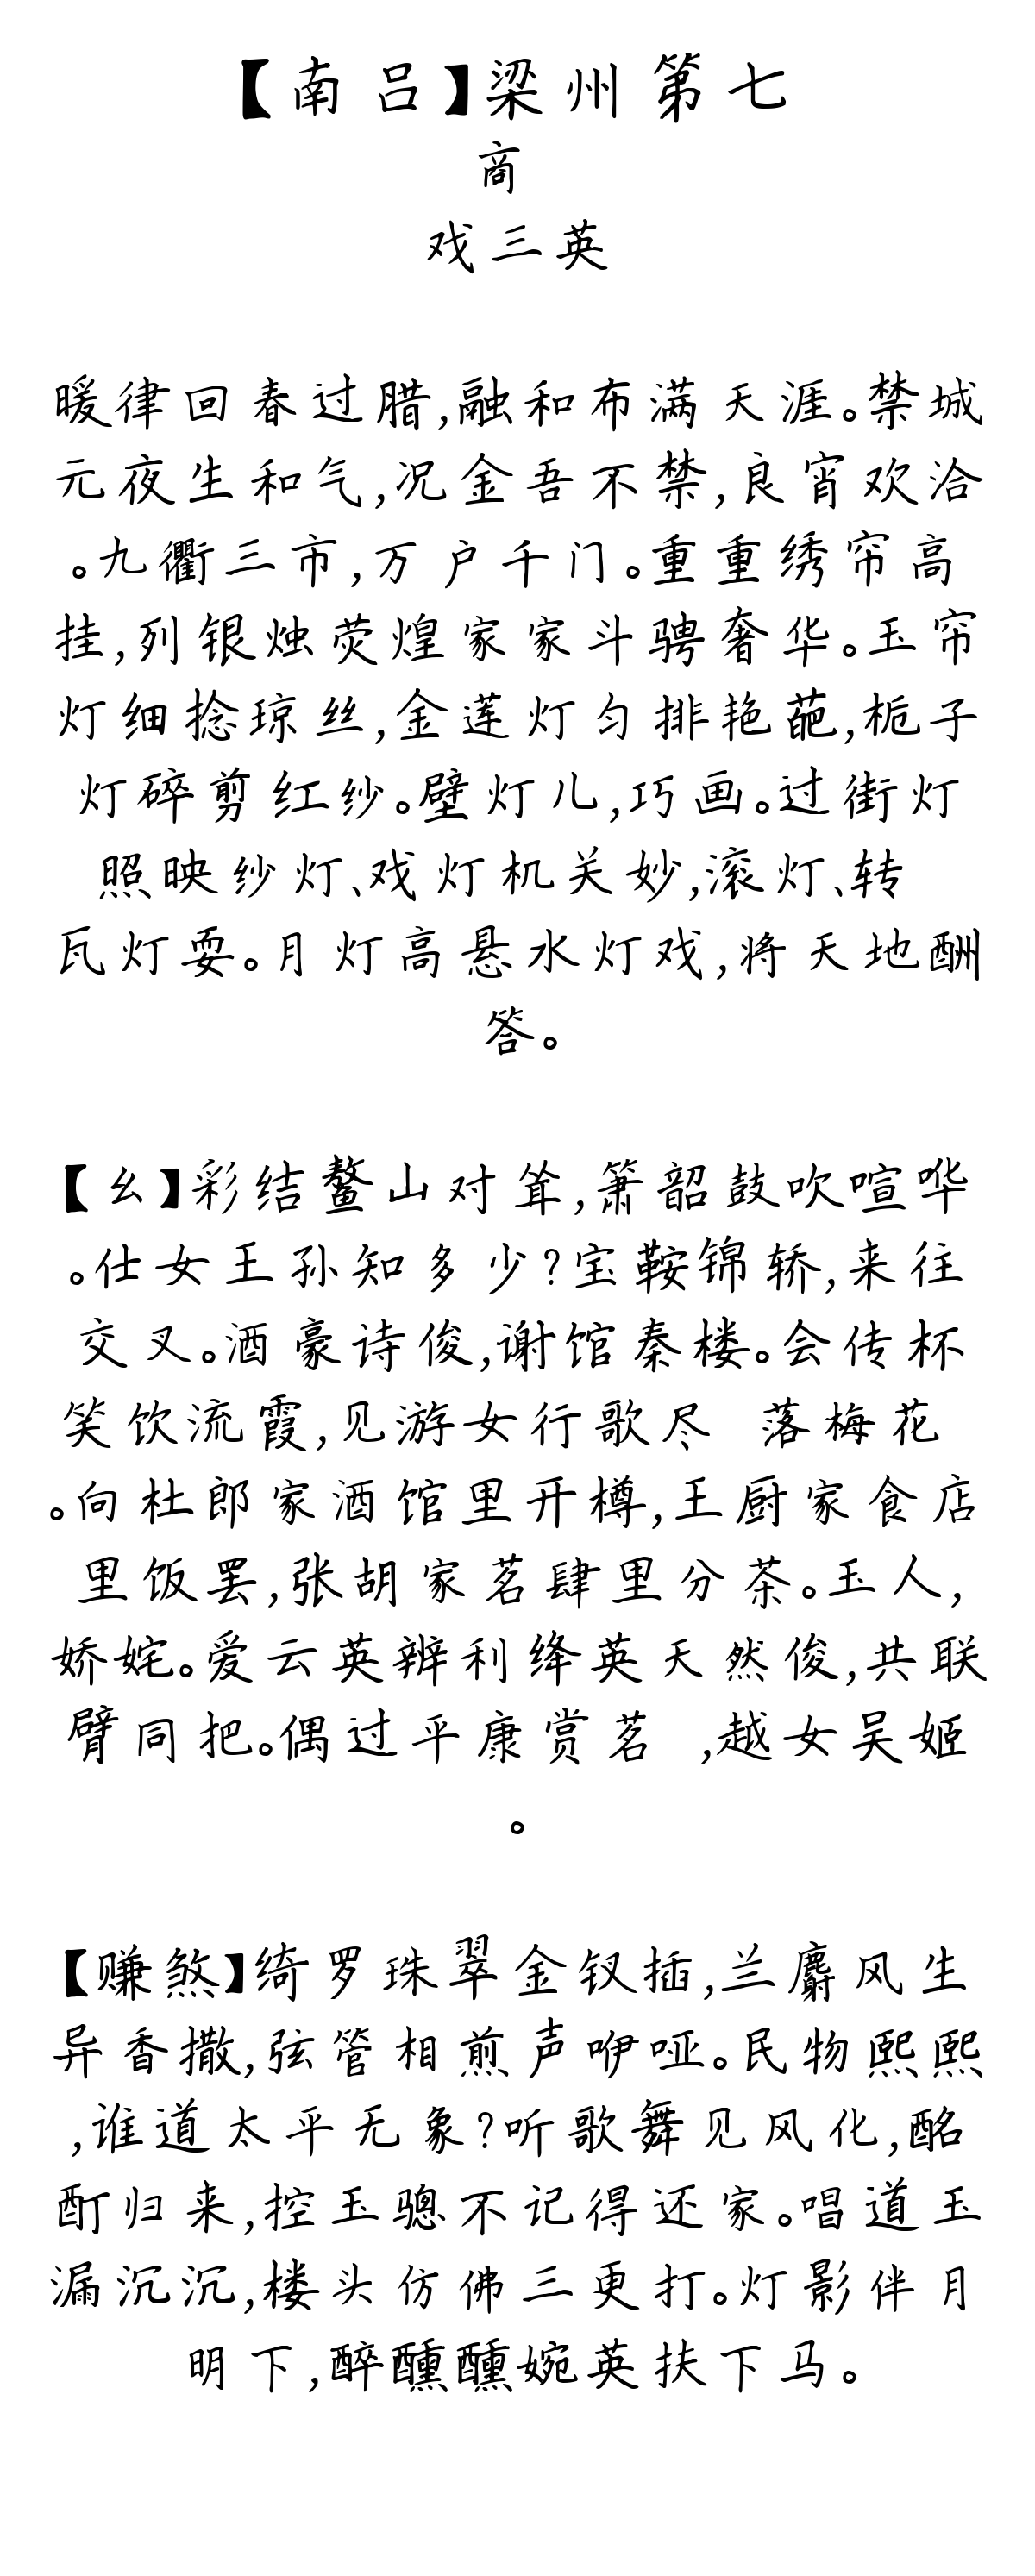 【南吕】梁州第七
商
戏三英
暖律回春过腊,融和布满天涯。禁城
元夜生和气,况金吾不禁,良宵欢洽
。九衢三市,万户千门。重重绣帘高
挂,列银烛荧煌家家斗骋奢华。玉帘
灯细捻琼丝,金莲灯匀排艳葩,栀子
灯碎剪红纱。壁灯儿,巧画。过街灯
照映纱灯、戏灯机关妙,滚灯、转
瓦灯耍。月灯高悬水灯戏,将天地酬
答。
【幺】彩结鳌山对耸,箫韶鼓吹喧哗
。仕女王孙知多少?宝鞍锦轿,来往
交叉。酒豪诗俊,谢馆秦楼。会传杯
笑饮流霞,见游女行歌尽 落梅花
。向杜郎家酒馆里开樽,王厨家食店
里饭罢,张胡家茗肆里分茶。玉人,
娇姹。爱云英辨利绛英天然俊,共联
臂同把。偶过平康赏茗 ,越女吴姬
。
【赚煞】绮罗珠翠金钗插,兰麝风生
异香撒,弦管相煎声咿哑。民物熙熙
,谁道太平无象?听歌舞见风化,酩
酊归来,控玉骢不记得还家。唱道玉
漏沉沉,楼头仿佛三更打。灯影伴月
明下,醉醺醺婉英扶下马。